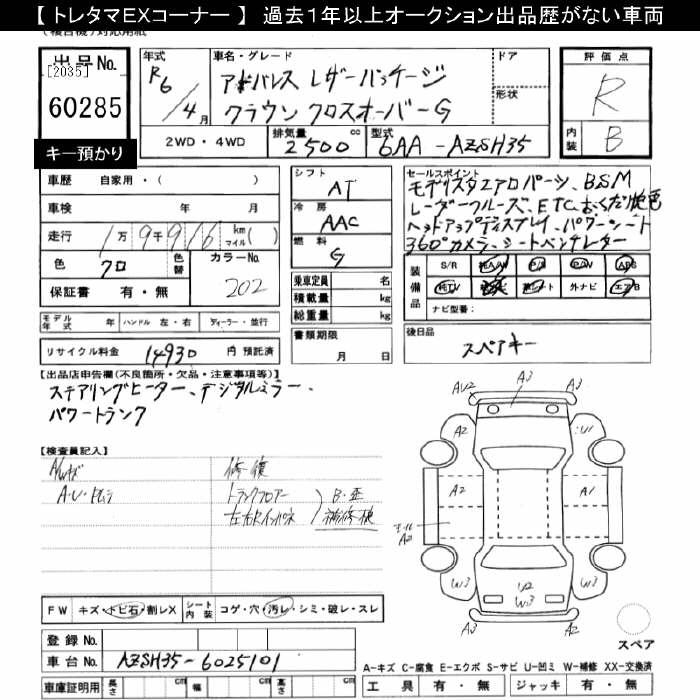 【 トレタマＥＸコーナー 】 過去１年以上オークション出品歴がない車両
出品No.
[2035]
60285
キー預かり
年式
R6/4月
車名・グレード
アドバンス レザーパッケージ
クラウン クロスオーバーG
ドア
形状
評価点
R
内装
B
2WD・4WD
排気量
2500cc
型式
6AA-AZSH35
車歴 自家用・( )
車検 年 月
走行 1万9千916 km マイル( )
色 クロ
色替
カラーNo.
202
保証書 有・無
シフト
AT
冷房
AAC
燃料
G
乗車定員 名
積載量 kg
総重量 kg
セールスポイント
モデリスタエアロパーツ、BSM
レーダークルーズ、ETC、
ヘッドアップディスプレイ、パワーシート
360°カメラ、シートベンチレーター
装備品
S/R 純AW P/S P/W ABS
純TV 革シート 外ナビ エアB
ナビ型番：
モデル年式 年 ハンドル 左・右 ディーラー・並行
リサイクル料金 14930 円 預託済
書類期限
月 日
後日品
スペアキー
【出品店申告欄(不良箇所・欠品・注意事項等)】
ステアリングヒーター、デジタルミラー、
パワートランク
【検査員記入】
AWキズ
A・U・
修復
トランクフロアー
左右Rインパネ
B・歪
補修痕
AU2
A3
A3
A2
U1
A2
A1
A2
W3
W3
U2
W3
A3
A2
スペア
FW キズ・トビ石・割レX
シート内装 コゲ・穴・汚レ・シミ・破レ・スレ
登録No.
車台No. AZSH35-6025101
車庫証明用 長さ cm 幅 cm 高さ cm
A-キズ C-腐食 E-エクボ S-サビ U-凹ミ W-補修 XX-交換済
工具 有・無 ジャッキ 有・無